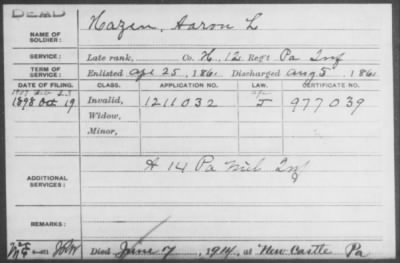 DEAD
NAME OF SOLDIER: Hazen, Aaron L
SERVICE: Late rank, Co. H, 12 Reg't Pa Inf
TERM OF SERVICE: Enlisted Apr 25, 1861 Discharged Aug 5, 1861
DATE OF FILING. CLASS. APPLICATION NO. LAW. CERTIFICATE NO.
1898 Oct 19 Invalid, 1211032 J 977039
Widow,
Minor,
ADDITIONAL SERVICES: A 14 Pa Mil Inf
REMARKS:
Died June 7, 1914, at New Castle Pa